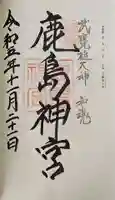 武甕槌大神 和魂
鹿島神宮
令和五年十一月二十一日